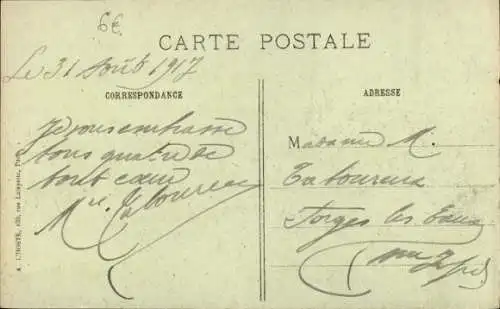 6€
CARTE POSTALE
Le 31 Août 1917
CORRESPONDANCE
ADRESSE
Je vous embrasse
tous quatre de
tout cœur
Madame M.
Taboureux
Forges les Eaux
A. L'HOSTE, rue Lafayette, Paris